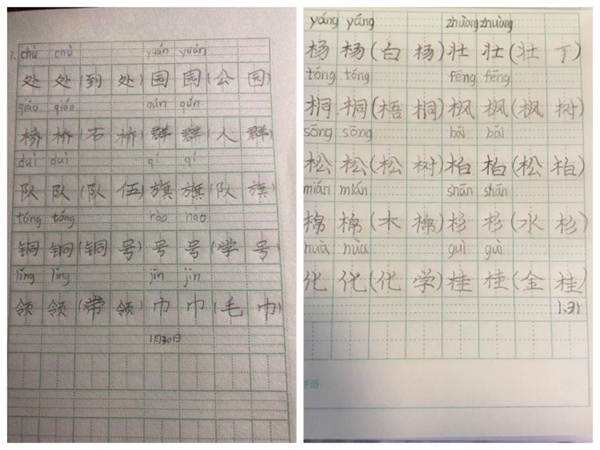 1. chù chù yuán yuán
处 处(到 处)园 园(公 园)
qiáo qiáo qún qún
桥 桥(石 桥)群 群(人 群)
duì duì qí qí
队 队(队 伍)旗 旗(队 旗)
tóng tóng hào hào
铜 铜(铜 号)号 号(学 号)
lǐng lǐng jīn jīn
领 领(带 领)巾 巾(毛 巾)
1月30日
yáng yáng zhuàng zhuàng
杨 杨(白 杨)壮 壮(壮 丁)
tóng tóng fēng fēng
桐 桐(梧 桐)枫 枫(枫 树)
sōng sōng bǎi bǎi
松 松(松 树)柏 柏(松 柏)
mián mián shān shān
棉 棉(木 棉)杉 杉(水 杉)
huà huà guì guì
化 化(化 学)桂 桂(金 桂)
1.31
评语